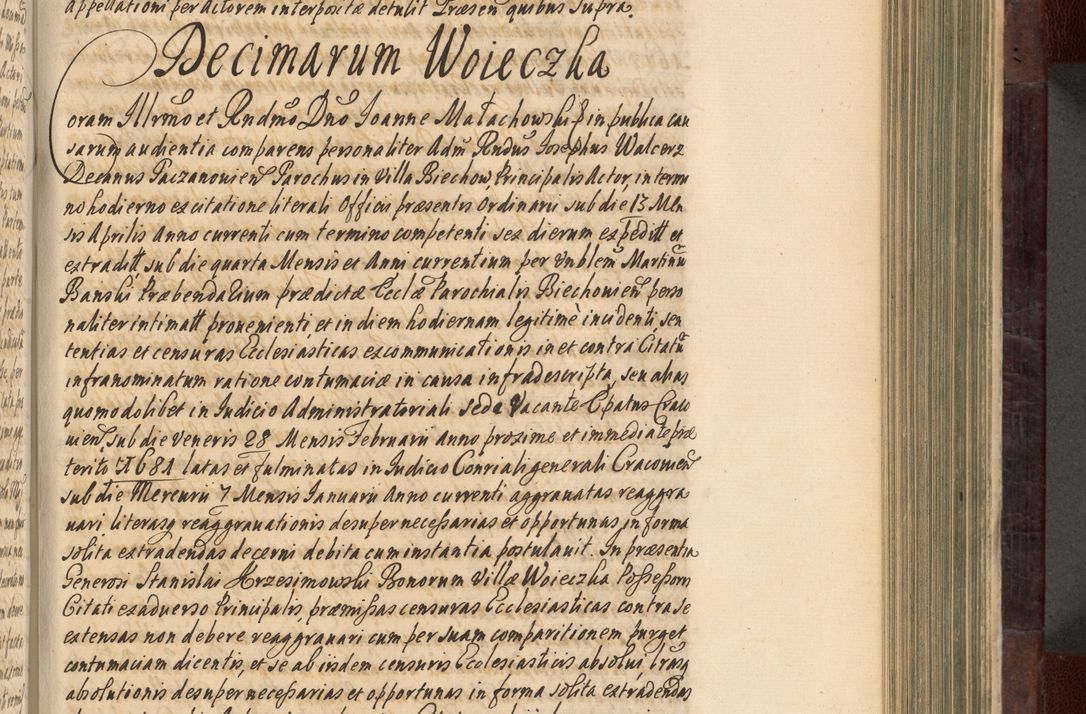 appellationi per Actorem interpositæ detulit Præsen quibus supra.
Decimarum Woieczka
Coram Illrmo et Rndmo Dno Joanne Małachowski in publica cau
sarum audientia comparens personaliter Adm Rndus Josephus Walcerz
Decanus Paczanovien Parochus in Villa Biechow, Principalis Actor, in termi
no hodierno ex citatione literali Officii præsentis Ordinarii sub die 13 Men
sis Aprilis Anno currenti cum termino competenti sex dierum expeditt et
extraditt sub die quarta Mensis et Anni currentium per Vnblem Martinu
Banski Præbendarium prædictæ Ecclæ Parochialis Biechouien perso
naliter intimatt proueniенti, et in diem hodiernam legitimè incidenti, sen
tentias et censuras Ecclesiasticas excommunicationis in et contra Citatu
infranominatum ratione contumaciæ in causa infradescripta, seu alias
quomodolibet in Iudicio Administratoriali Sede Vacante Epatus Craco
uien, sub die Veneris 28 Mensis Februarii Anno proxime et immediate præ
terito 1681 latas et fulminatas in Iudicio Conriali generali Cracouien
sub die Mercurii 7 Mensis Ianuarii Anno currenti aggrauatas reaggra
uari, literasq reaggrauationis desuper necessarias et opportunas in forma
solita extradendas decerni debita cum instantia postulauit. In præsentia
Generosi Stanislai Krzesimowski Bonorum Villæ Woieczka Possessoris
Citati ex aduerso Principalis, præmissas censuras Ecclesiasticas contra se
extensas non debere reaggrauari cum per suam comparitionem purget
contumaciam dicentis, et se ab iisdem censuris Ecclesiasticis absolui lrasq
absolutionis desuper necessarias et opportunas in forma solita extradendas